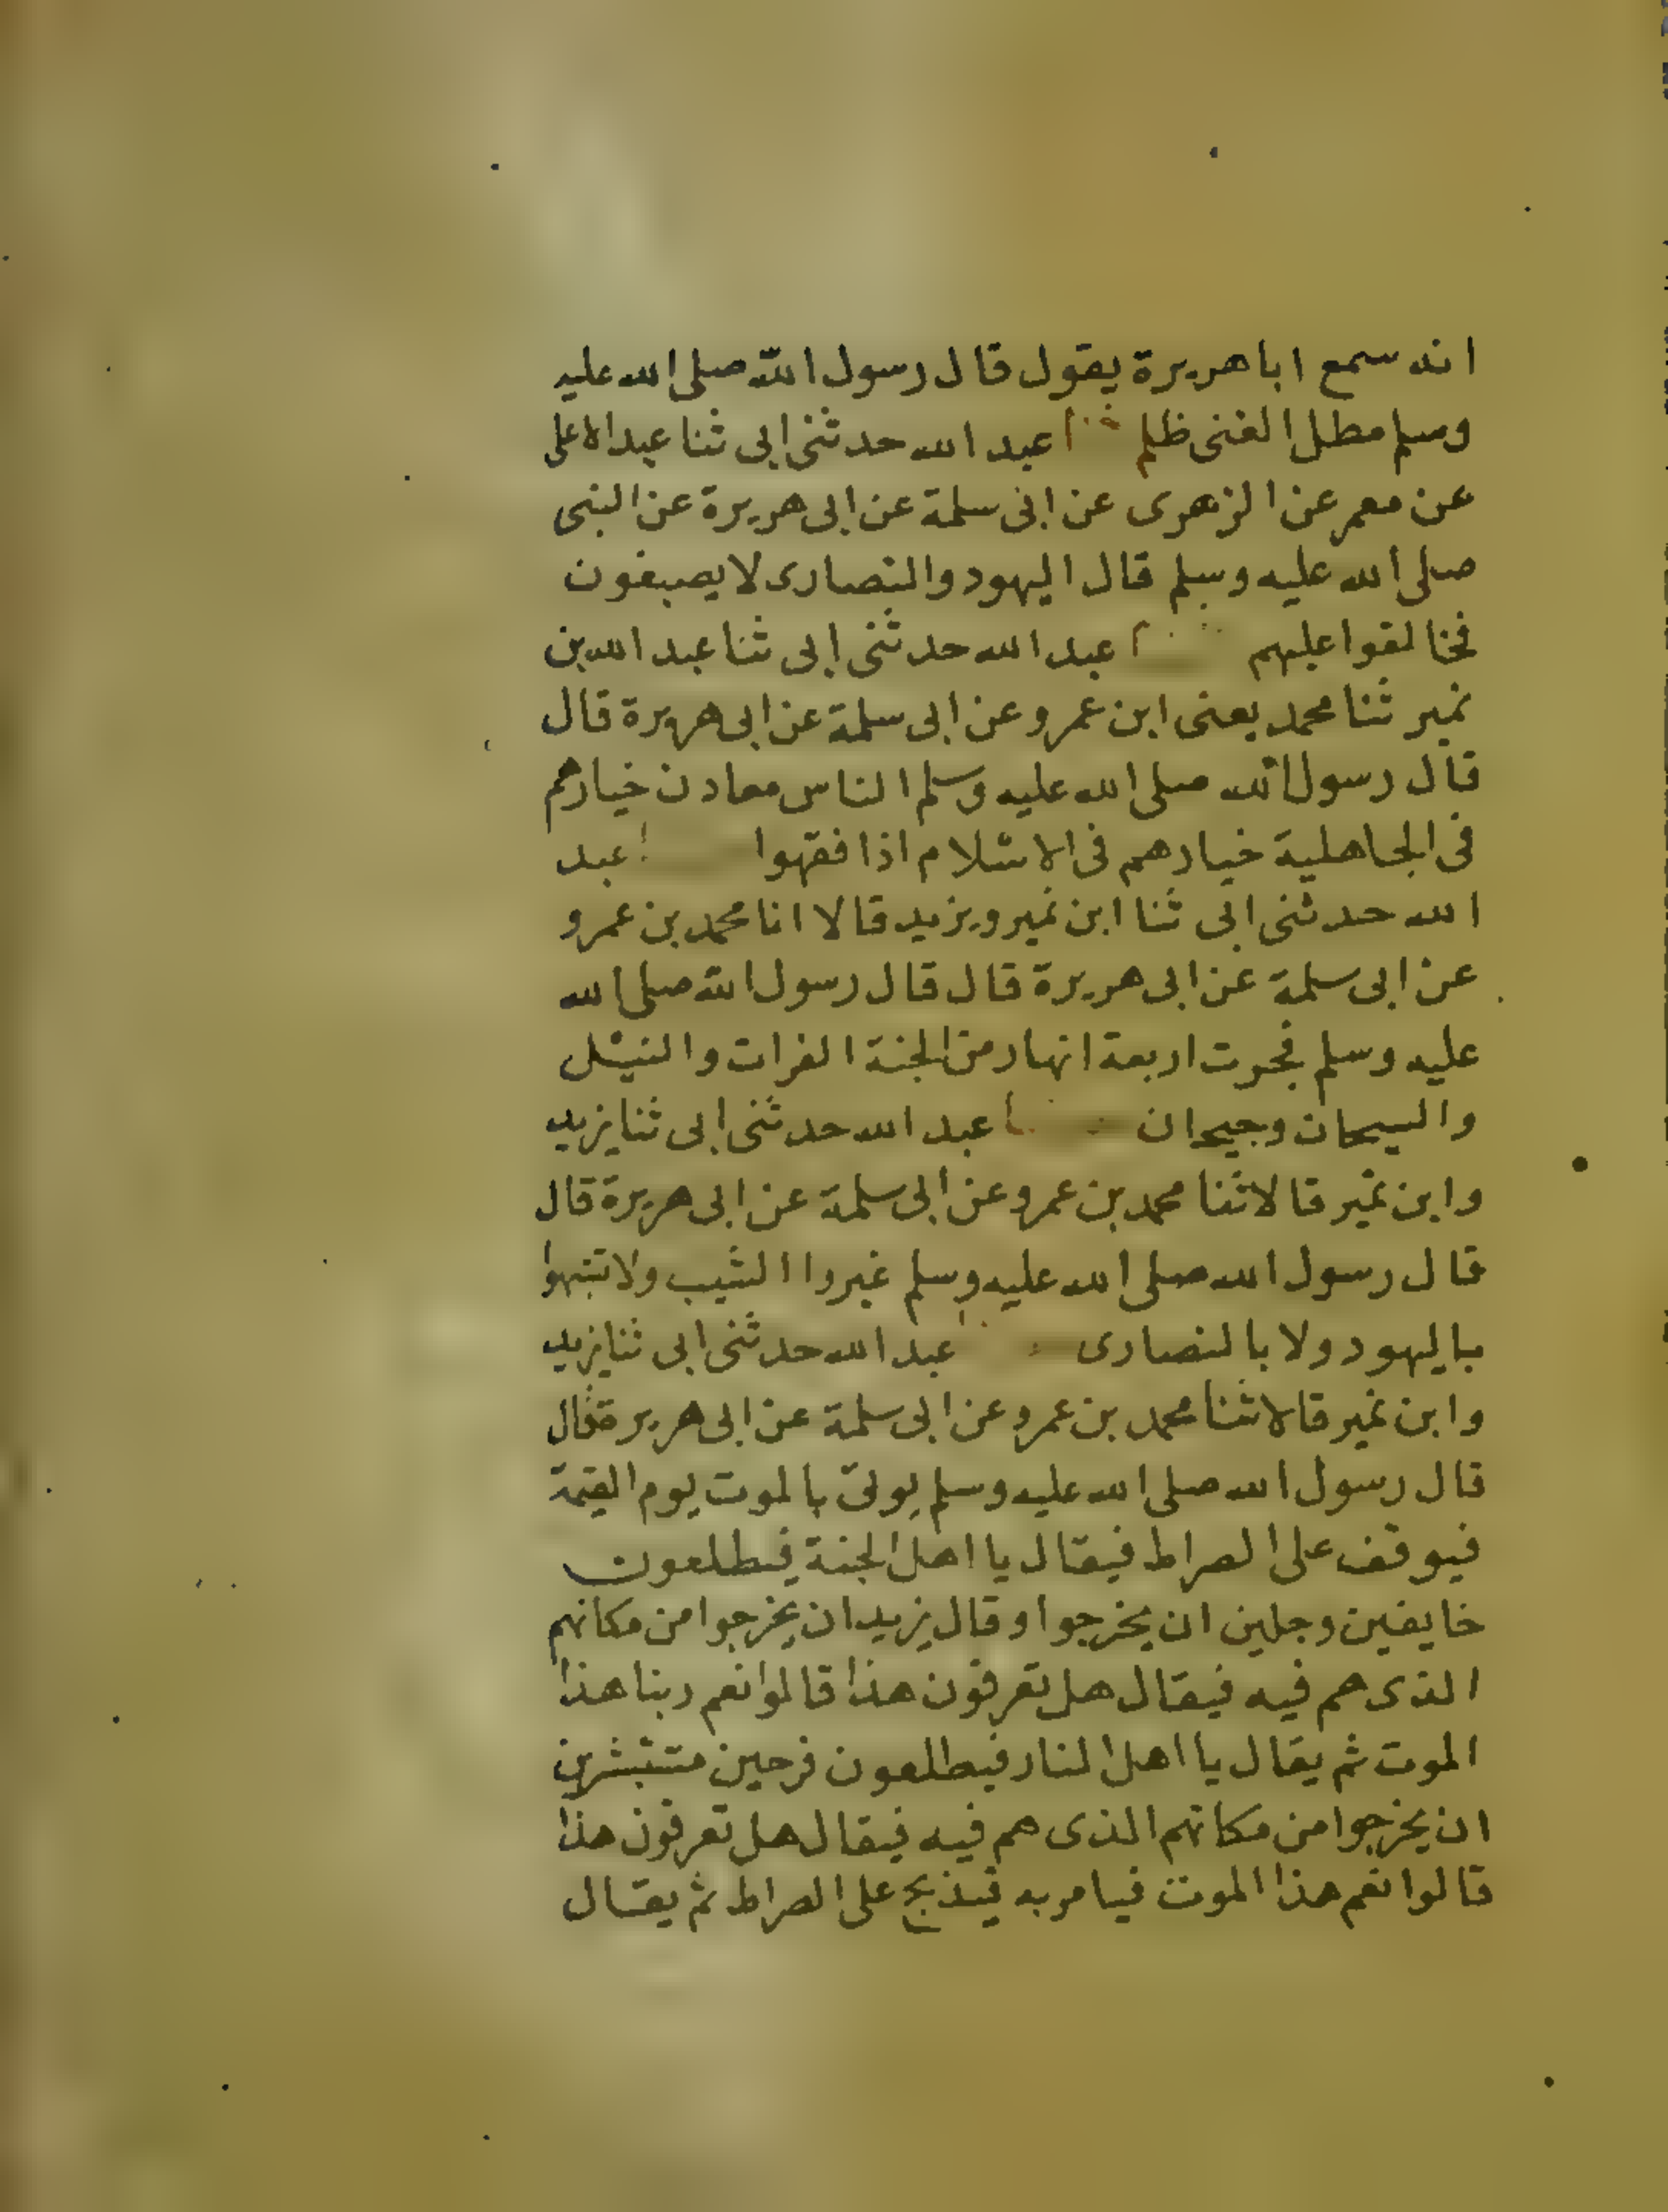 انه سمع ابا هريرة يقول قال رسول الله صلى الله عليه
وسلم مطل الغنى ظلم عبد الله حدثنى ابى ثنا عبد الاعلى
عن معمر عن الزهرى عن ابى سلمة عن ابى هريرة عن النبى
صلى الله عليه وسلم قال اليهود والنصارى لا يصبغون
فخالفوا عليهم عبد الله حدثنى ابى ثنا عبد الله بن
نمير ثنا محمد يعنى ابن عمرو عن ابى سلمة عن ابى هريرة قال
قال رسول الله صلى الله عليه وسلم الناس معادن خيارهم
فى الجاهلية خيارهم فى الاسلام اذا فقهوا عبد
الله حدثنى ابى ثنا ابن نمير ويزيد قالا انا محمد بن عمرو
عن ابى سلمة عن ابى هريرة قال قال رسول الله صلى الله
عليه وسلم فجرت اربعة انهار من الجنة الفرات والنيل
والسيحان وجيحان عبد الله حدثنى ابى ثنا يزيد
وابن نمير قالا ثنا محمد بن عمرو عن ابى سلمة عن ابى هريرة قال
قال رسول الله صلى الله عليه وسلم غيروا الشيب ولا تشبهوا
باليهود ولا بالنصارى عبد الله حدثنى ابى ثنا يزيد
وابن نمير قالا ثنا محمد بن عمرو عن ابى سلمة عن ابى هريرة قال
قال رسول الله صلى الله عليه وسلم يوتى بالموت يوم القيمة
فيوقف على الصراط فيقال يا اهل الجنة فيطلعون
خايفين وجلين ان يخرجوا وقال يزيد ان يخرجوا من مكانهم
الذى هم فيه فيقال هل تعرفون هذا قالوا نعم ربنا هذا
الموت ثم يقال يا اهل النار فيطلعون فرحين مستبشرين
ان يخرجوا من مكانهم الذى هم فيه فيقال هل تعرفون هذا
قالوا نعم هذا الموت فيامر به فيذبح على الصراط ثم يقال